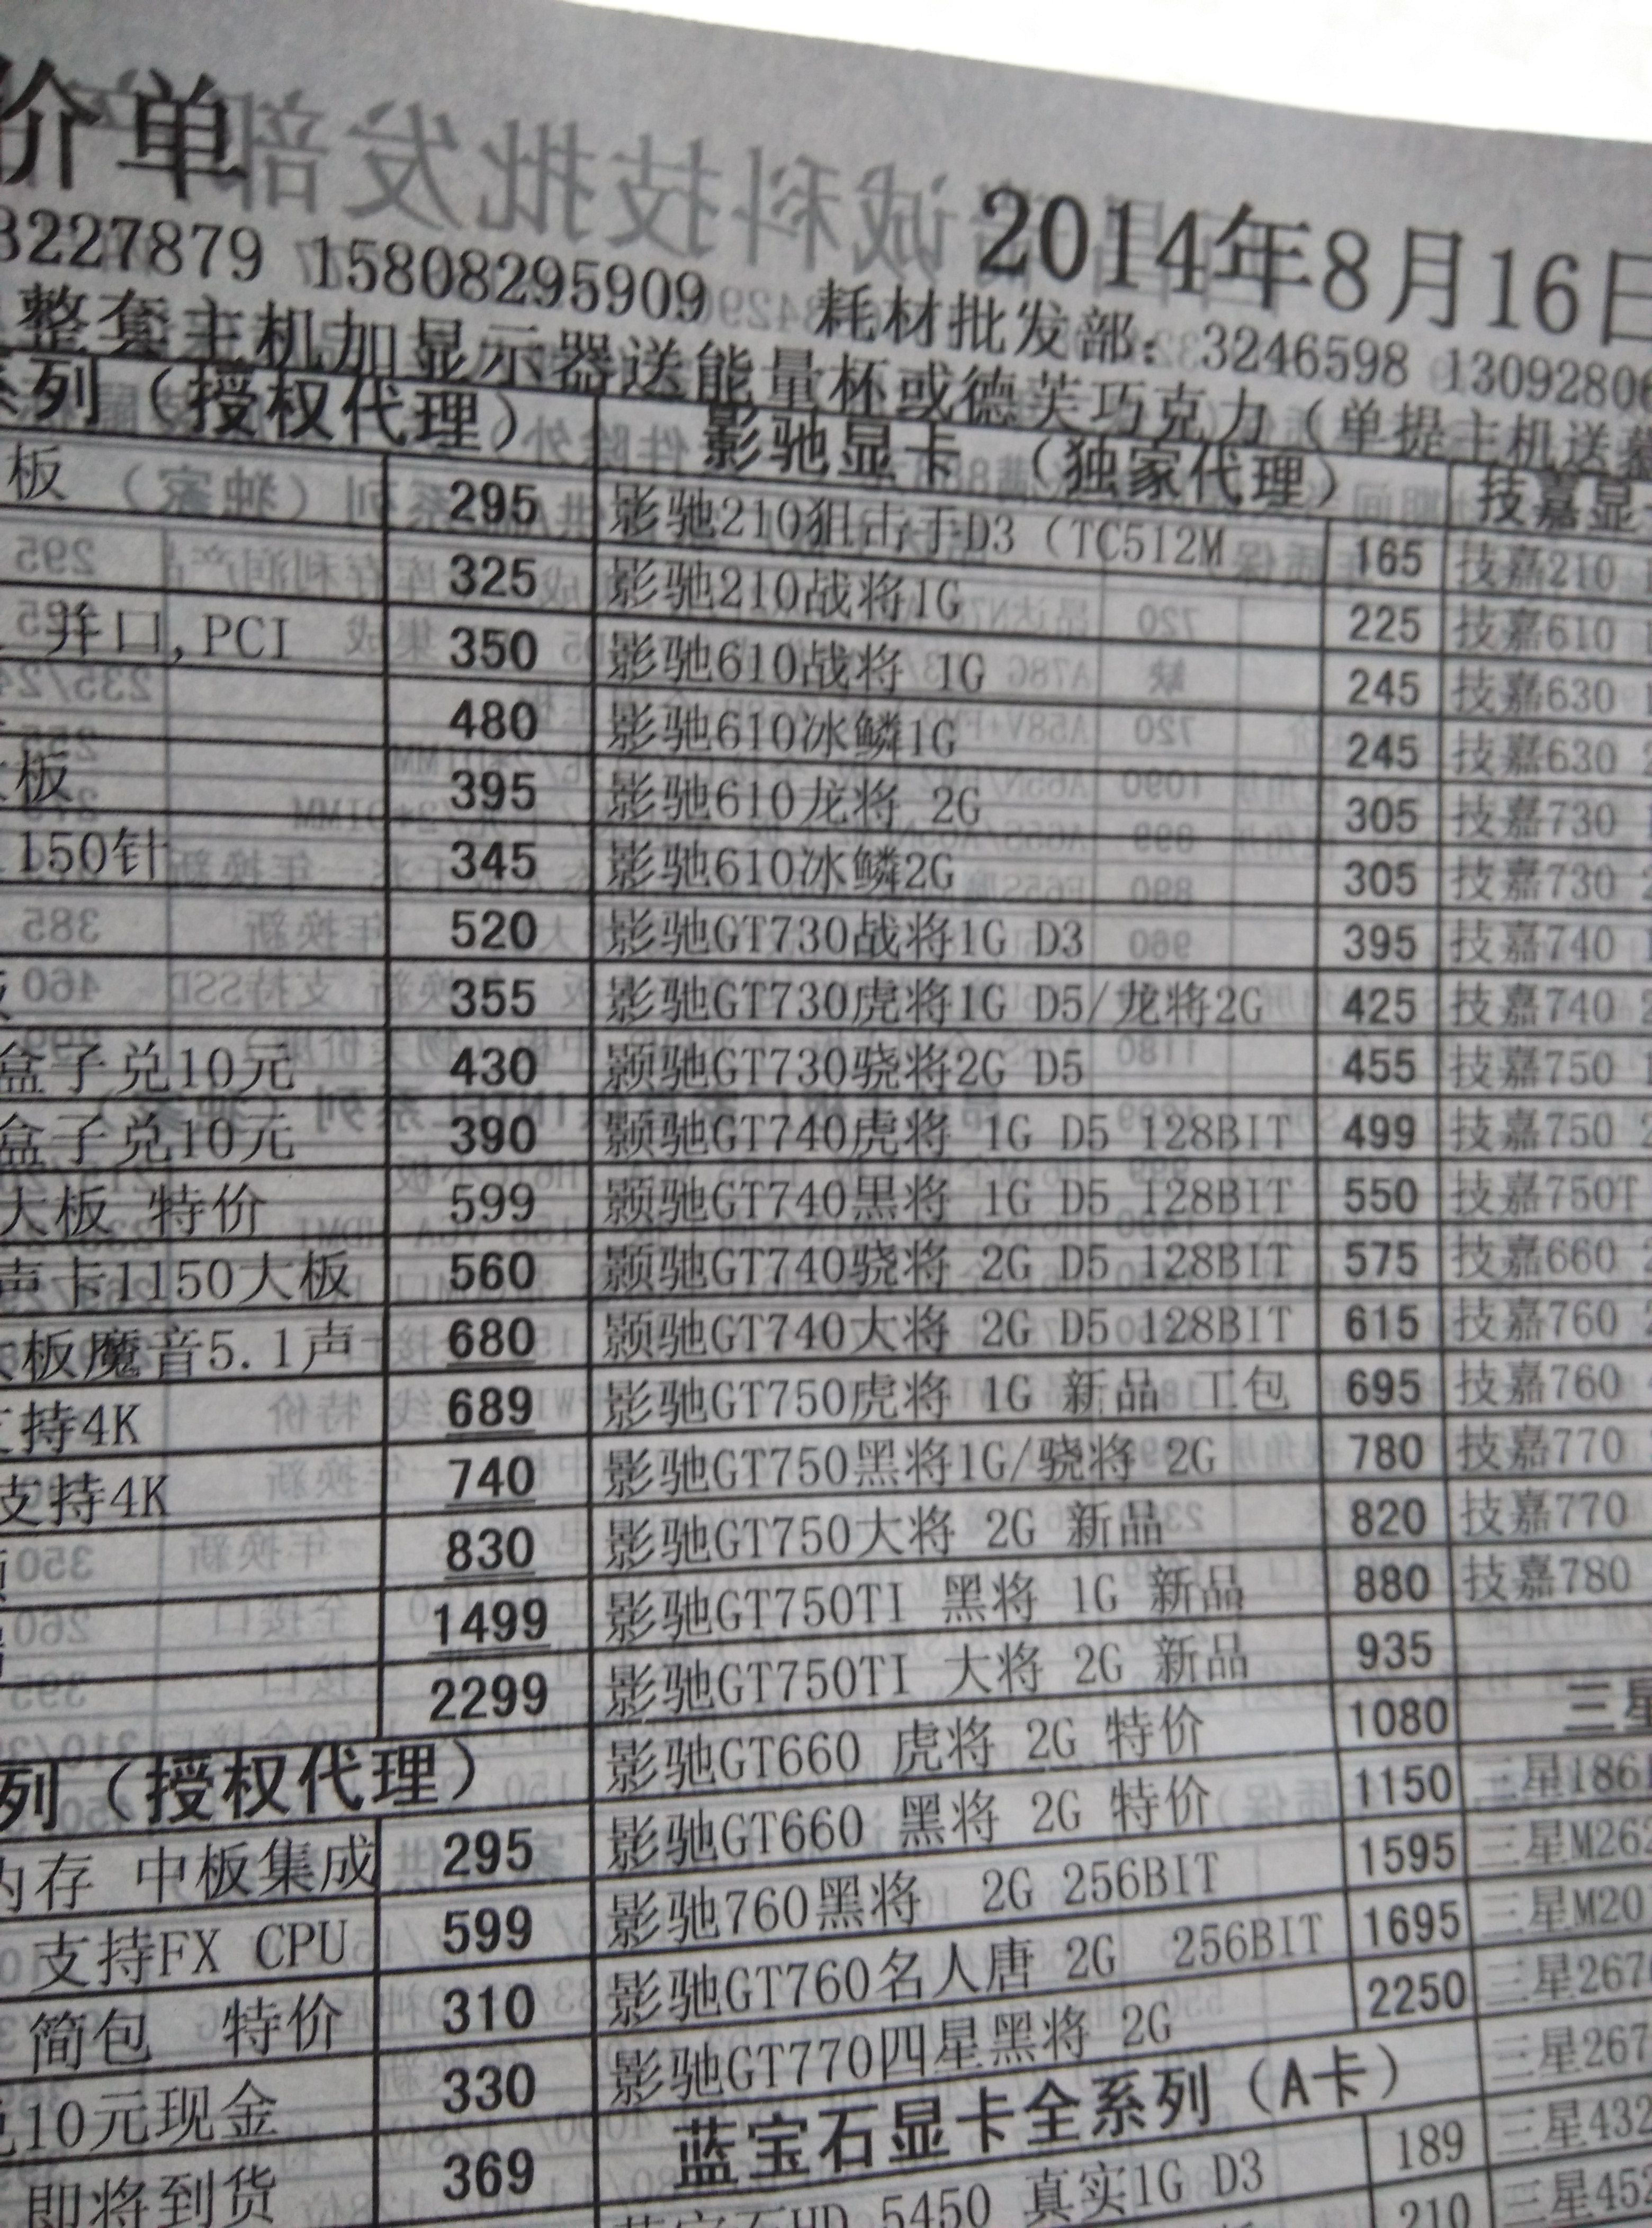 价单
2014年8月16日
3227879 15808295909 耗材批发部: 3246598 13092806
整套主机加显示器送能量杯或德芙巧克力（单提主机送
系列（授权代理） 影驰显卡 （独家代理） 技嘉显
板 295 影驰210狙击手D3（TC512M 165 技嘉210
325 影驰210战将1G 225 技嘉610
并口,PCI 350 影驰610战将 1G 245 技嘉630
480 影驰610冰鳞1G 245 技嘉630
板 395 影驰610龙将 2G 305 技嘉730
150针 345 影驰610冰鳞2G 305 技嘉730
520 影驰GT730战将1G D3 395 技嘉740
355 影驰GT730虎将1G D5/龙将2G 425 技嘉740
盒子兑10元 430 颢驰GT730骁将2G D5 455 技嘉750
盒子兑10元 390 颢驰GT740虎将 1G D5 128BIT 499 技嘉750
大板 特价 599 颢驰GT740黑将 1G D5 128BIT 550 技嘉750T
声卡1150大板 560 颢驰GT740骁将 2G D5 128BIT 575 技嘉660
大板魔音5.1声 680 颢驰GT740大将 2G D5 128BIT 615 技嘉760
支持4K 689 影驰GT750虎将 1G 新品 工包 695 技嘉760
支持4K 740 影驰GT750黑将1G/骁将 2G 780 技嘉770
830 影驰GT750大将 2G 新品 820 技嘉770
1499 影驰GT750TI 黑将 1G 新品 880 技嘉780
2299 影驰GT750TI 大将 2G 新品 935
列（授权代理） 影驰GT660 虎将 2G 特价 1080 三星
内存 中板集成 295 影驰GT660 黑将 2G 特价 1150 三星186
支持FX CPU 599 影驰760黑将 2G 256BIT 1595 三星M262
简包 特价 310 影驰GT760名人唐 2G 256BIT 1695 三星M20
10元现金 330 影驰GT770四星黑将 2G 2250 三星267
即将到货 369 蓝宝石显卡全系列（A卡） 三星267
蓝宝石HD 5450 真实1G D3 189 三星432
210 三星452